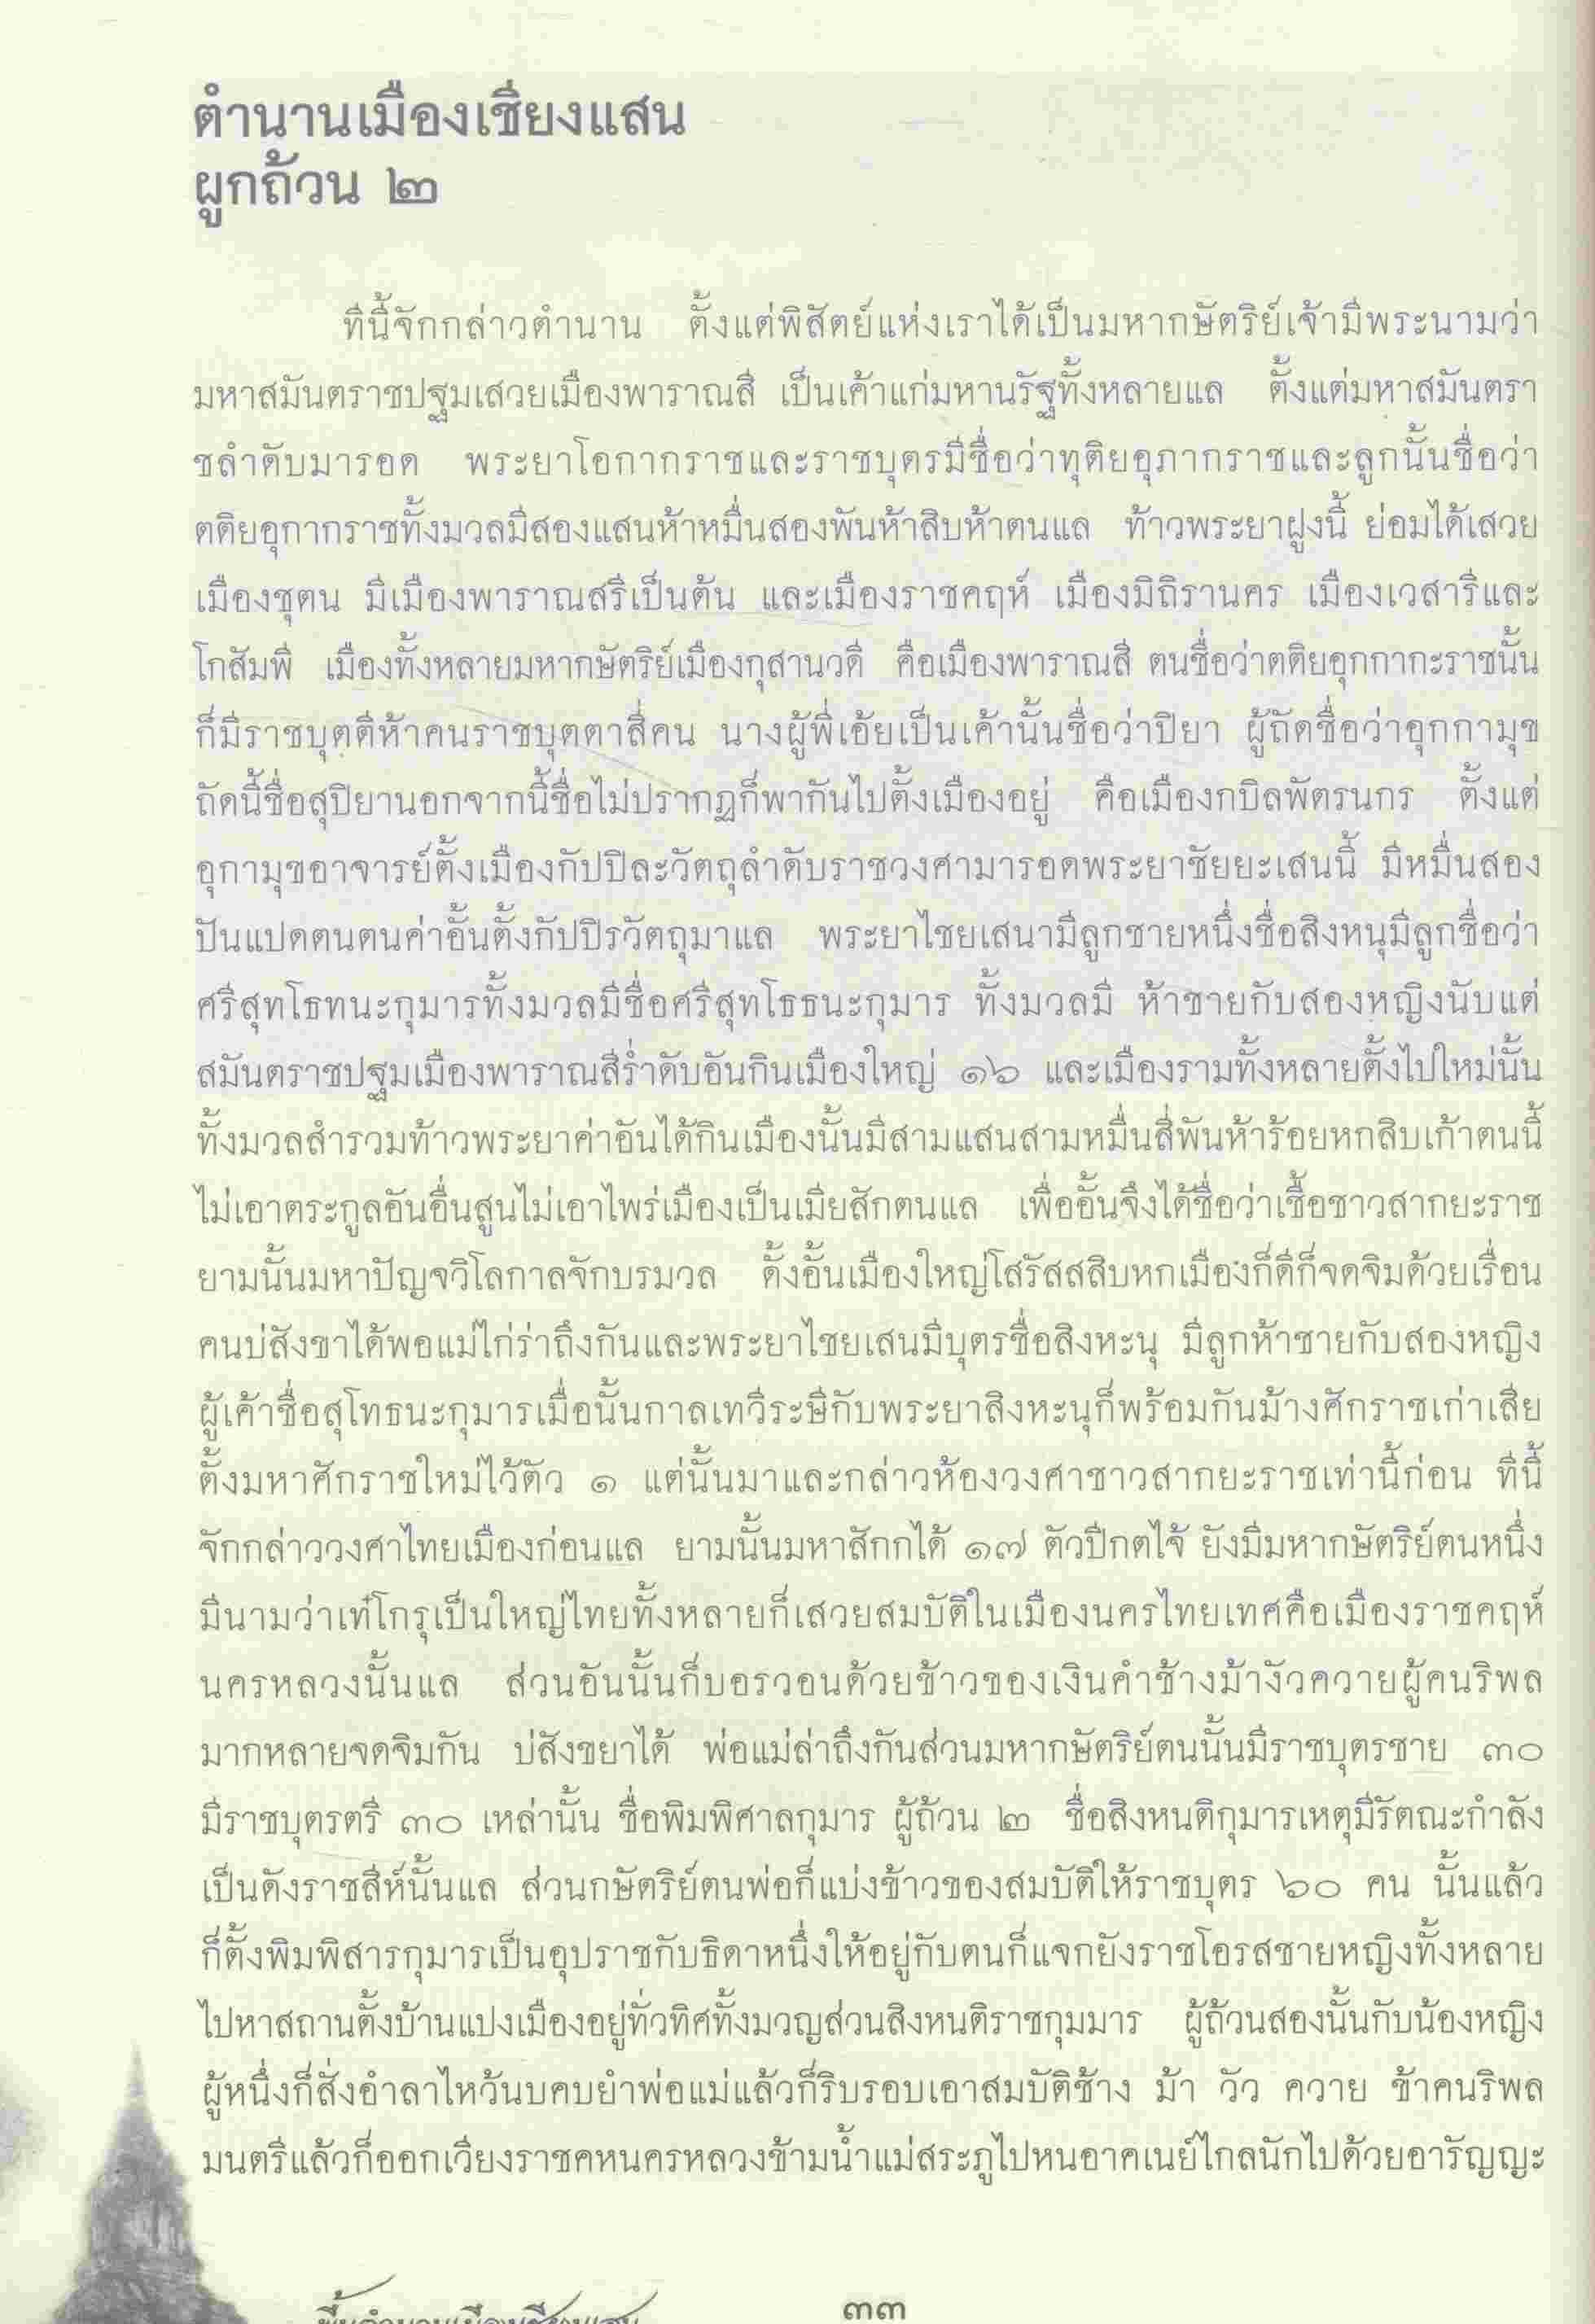 ตำนานเมืองเชียงแสน
ผูกถ้วน ๒
ทีนี้จักกล่าวตำนาน ตั้งแต่พิสัตย์แห่งเราได้เป็นมหากษัตริย์เจ้ามีพระนามว่า
มหาสมันตราชปฐมเสวยเมืองพาราณสี เป็นเค้าแก่มหานรัฐทั้งหลายแล ตั้งแต่มหาสมันตรา
ชลำดับมารอด พระยาโอกากราชและราชบุตรมีชื่อว่าทุติยอุภากราชและลูกนั้นชื่อว่า
ตติยอุกากราชทั้งมวลมีสองแสนห้าหมื่นสองพันห้าสิบห้าตนแล ท้าวพระยาฝูงนี้ ย่อมได้เสวย
เมืองชุตน มีเมืองพาราณสรีเป็นต้น และเมืองราชคฤห์ เมืองมิถิรานคร เมืองเวสารีและ
โกสัมพี เมืองทั้งหลายมหากษัตริย์เมืองกุสานวดี คือเมืองพาราณสี ตนชื่อว่าตติยอุกกากะราชนั้น
ก็มีราชบุตตีห้าคนราชบุตตาสี่คน นางผู้พี่เอ้ยเป็นเค้านั้นชื่อว่าปิยา ผู้ถัดชื่อว่าอุกกามุข
ถัดนี้ชื่อสุปิยานอกจากนี้ชื่อไม่ปรากฏก็พากันไปตั้งเมืองอยู่ คือเมืองกบิลพัตรนกร ตั้งแต่
อุกามุขอาจารย์ตั้งเมืองกัปปิละวัตถุลำดับราชวงศามารอดพระยาชัยยะเสนนี้ มีหมื่นสอง
ปันแปดตนตนค่าอั้นตั้งกัปปิรวัตถุมาแล พระยาไชยเสนามีลูกชายหนึ่งชื่อสิงหนุมีลูกชื่อว่า
ศรีสุทโธทนะกุมารทั้งมวลมีชื่อศรีสุทโธธนะกุมาร ทั้งมวลมี ห้าชายกับสองหญิงนับแต่
สมันตราชปฐมเมืองพาราณสีร่ำดับอันกินเมืองใหญ่ ๑๖ และเมืองรามทั้งหลายตั้งไปใหม่นั้น
ทั้งมวลสำรวมท้าวพระยาค่าอันได้กินเมืองนั้นมีสามแสนสามหมื่นสี่พันห้าร้อยหกสิบเก้าตนนี้
ไม่เอาตระกูลอันอื่นสูนไม่เอาไพร่เมืองเป็นเมียสักตนแล เพื่ออั้นจึงได้ชื่อว่าเชื้อชาวสากยะราช
ยามนั้นมหาปัญจวิโลกาลจักบรมวล ดั้งอั้นเมืองใหญ่โสรัสสสิบหกเมืองก็ดีก็จดจิมด้วยเรื่อน
คนบ่สังขาได้พอแม่ไก่ร่าถึงกันและพระยาไชยเสนมีบุตรชื่อสิงหะนุ มีลูกห้าชายกับสองหญิง
ผู้เค้าชื่อสุโทธนะกุมารเมื่อนั้นกาลเทวีระษีกับพระยาสิงหะนุก็พร้อมกันม้างศักราชเก่าเสีย
ตั้งมหาศักราชใหม่ไว้ตัว ๑ แต่นั้นมาและกล่าวห้องวงศาชาวสากยะราชเท่านี้ก่อน ทีนี้
จักกล่าววงศาไทยเมืองก่อนแล ยามนั้นมหาสักกได้ ๑๗ ตัวปีกตไจ้ ยังมีมหากษัตริย์ตนหนึ่ง
มีนามว่าเท๋โกรุเป็นใหญ่ไทยทั้งหลายก็เสวยสมบัติในเมืองนครไทยเทศคือเมืองราชคฤห์
นครหลวงนั้นแล ส่วนอันนั้นก็บอรวอนด้วยข้าวของเงินคำช้างม้างัวควายผู้คนริพล
มากหลายจดจิมกัน บ่สังขยาได้ พ่อแม่ล่าถึงกันส่วนมหากษัตริย์ตนนั้นมีราชบุตรชาย ๓๐
มีราชบุตรตรี ๓๐ เหล่านั้น ชื่อพิมพิศาลกุมาร ผู้ถ้วน ๒ ชื่อสิงหนติกุมารเหตุมีรัตณะกำลัง
เป็นดังราชสีห์นั้นแล ส่วนกษัตริย์ตนพ่อก็แบ่งข้าวของสมบัติให้ราชบุตร ๖๐ คน นั้นแล้ว
ก็ตั้งพิมพิสารกุมารเป็นอุปราชกับธิดาหนึ่งให้อยู่กับตนก็แจกยังราชโอรสชายหญิงทั้งหลาย
ไปหาสถานตั้งบ้านแปงเมืองอยู่ทั่วทิศทั้งมวญส่วนสิงหนติราชกุมมาร ผู้ถ้วนสองนั้นกับน้องหญิง
ผู้หนึ่งก็สั่งอำลาไหว้นบคบยำพ่อแม่แล้วก็ริบรอบเอาสมบัติช้าง ม้า วัว ควาย ข้าคนริพล
มนตรีแล้วก็ออกเวียงราชคหนครหลวงข้ามน้ำแม่สระภูไปหนอาคเนย์ไกลนักไปด้วยอารัญญะ
๓๓